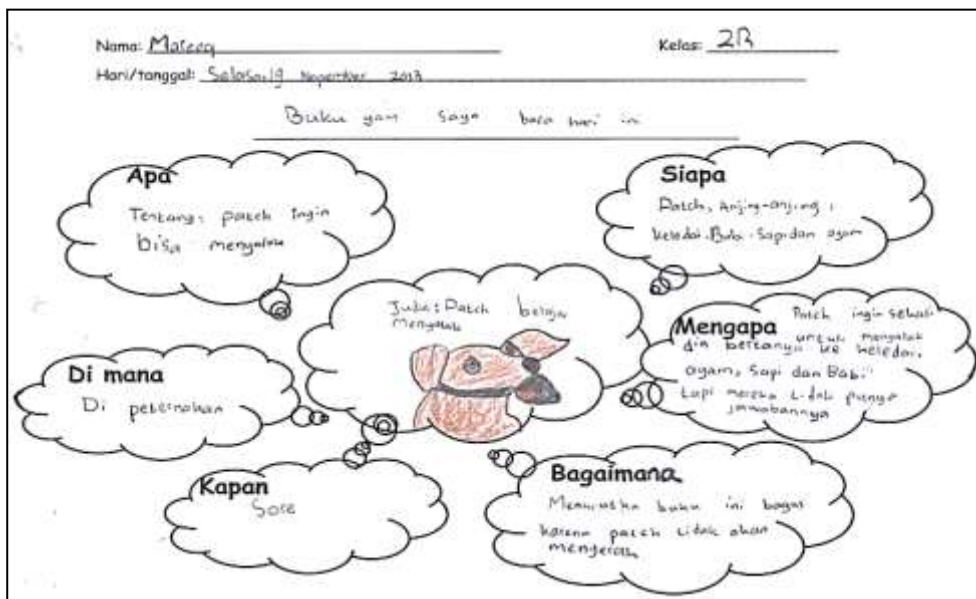 Nama: Mareeq
Kelas: 2B
Hari/tanggal: Selasa, 19 Nopember 2013
Buku yan saya baca hari in
Apa
Tentang: patch ingin
bisa menyalak
Siapa
Patch, Anjing-anjing,
keledai, Babi, Sapi dan ayam
Judul: Patch belajar
menyalak
Mengapa Patch ingin sekali
untuk menyalak
dia bertanya ke keledai,
ayam, Sapi dan Babi
tapi mereka tidak punya
jawabannya
Di mana
Di peternakan
Kapan
Sore
Bagaimana
buku ini bagus
karena patch tidak akan
menyerah